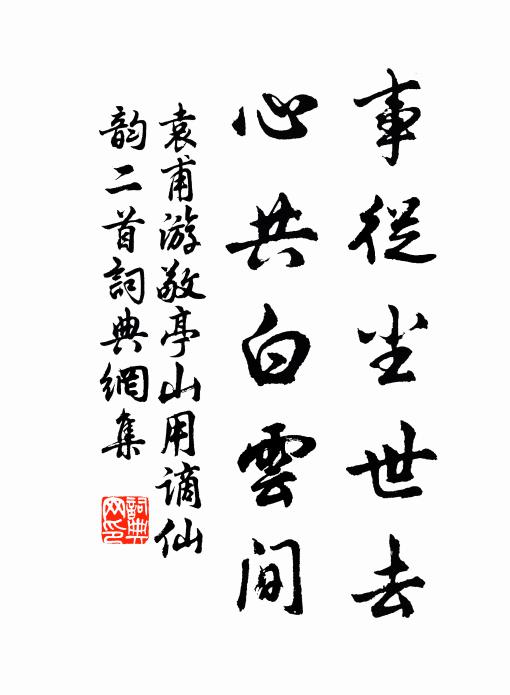 事從尘世去
心共白雲間
袁甫游敬亭山用谪仙
韵二首詞典網集
詞典
网印